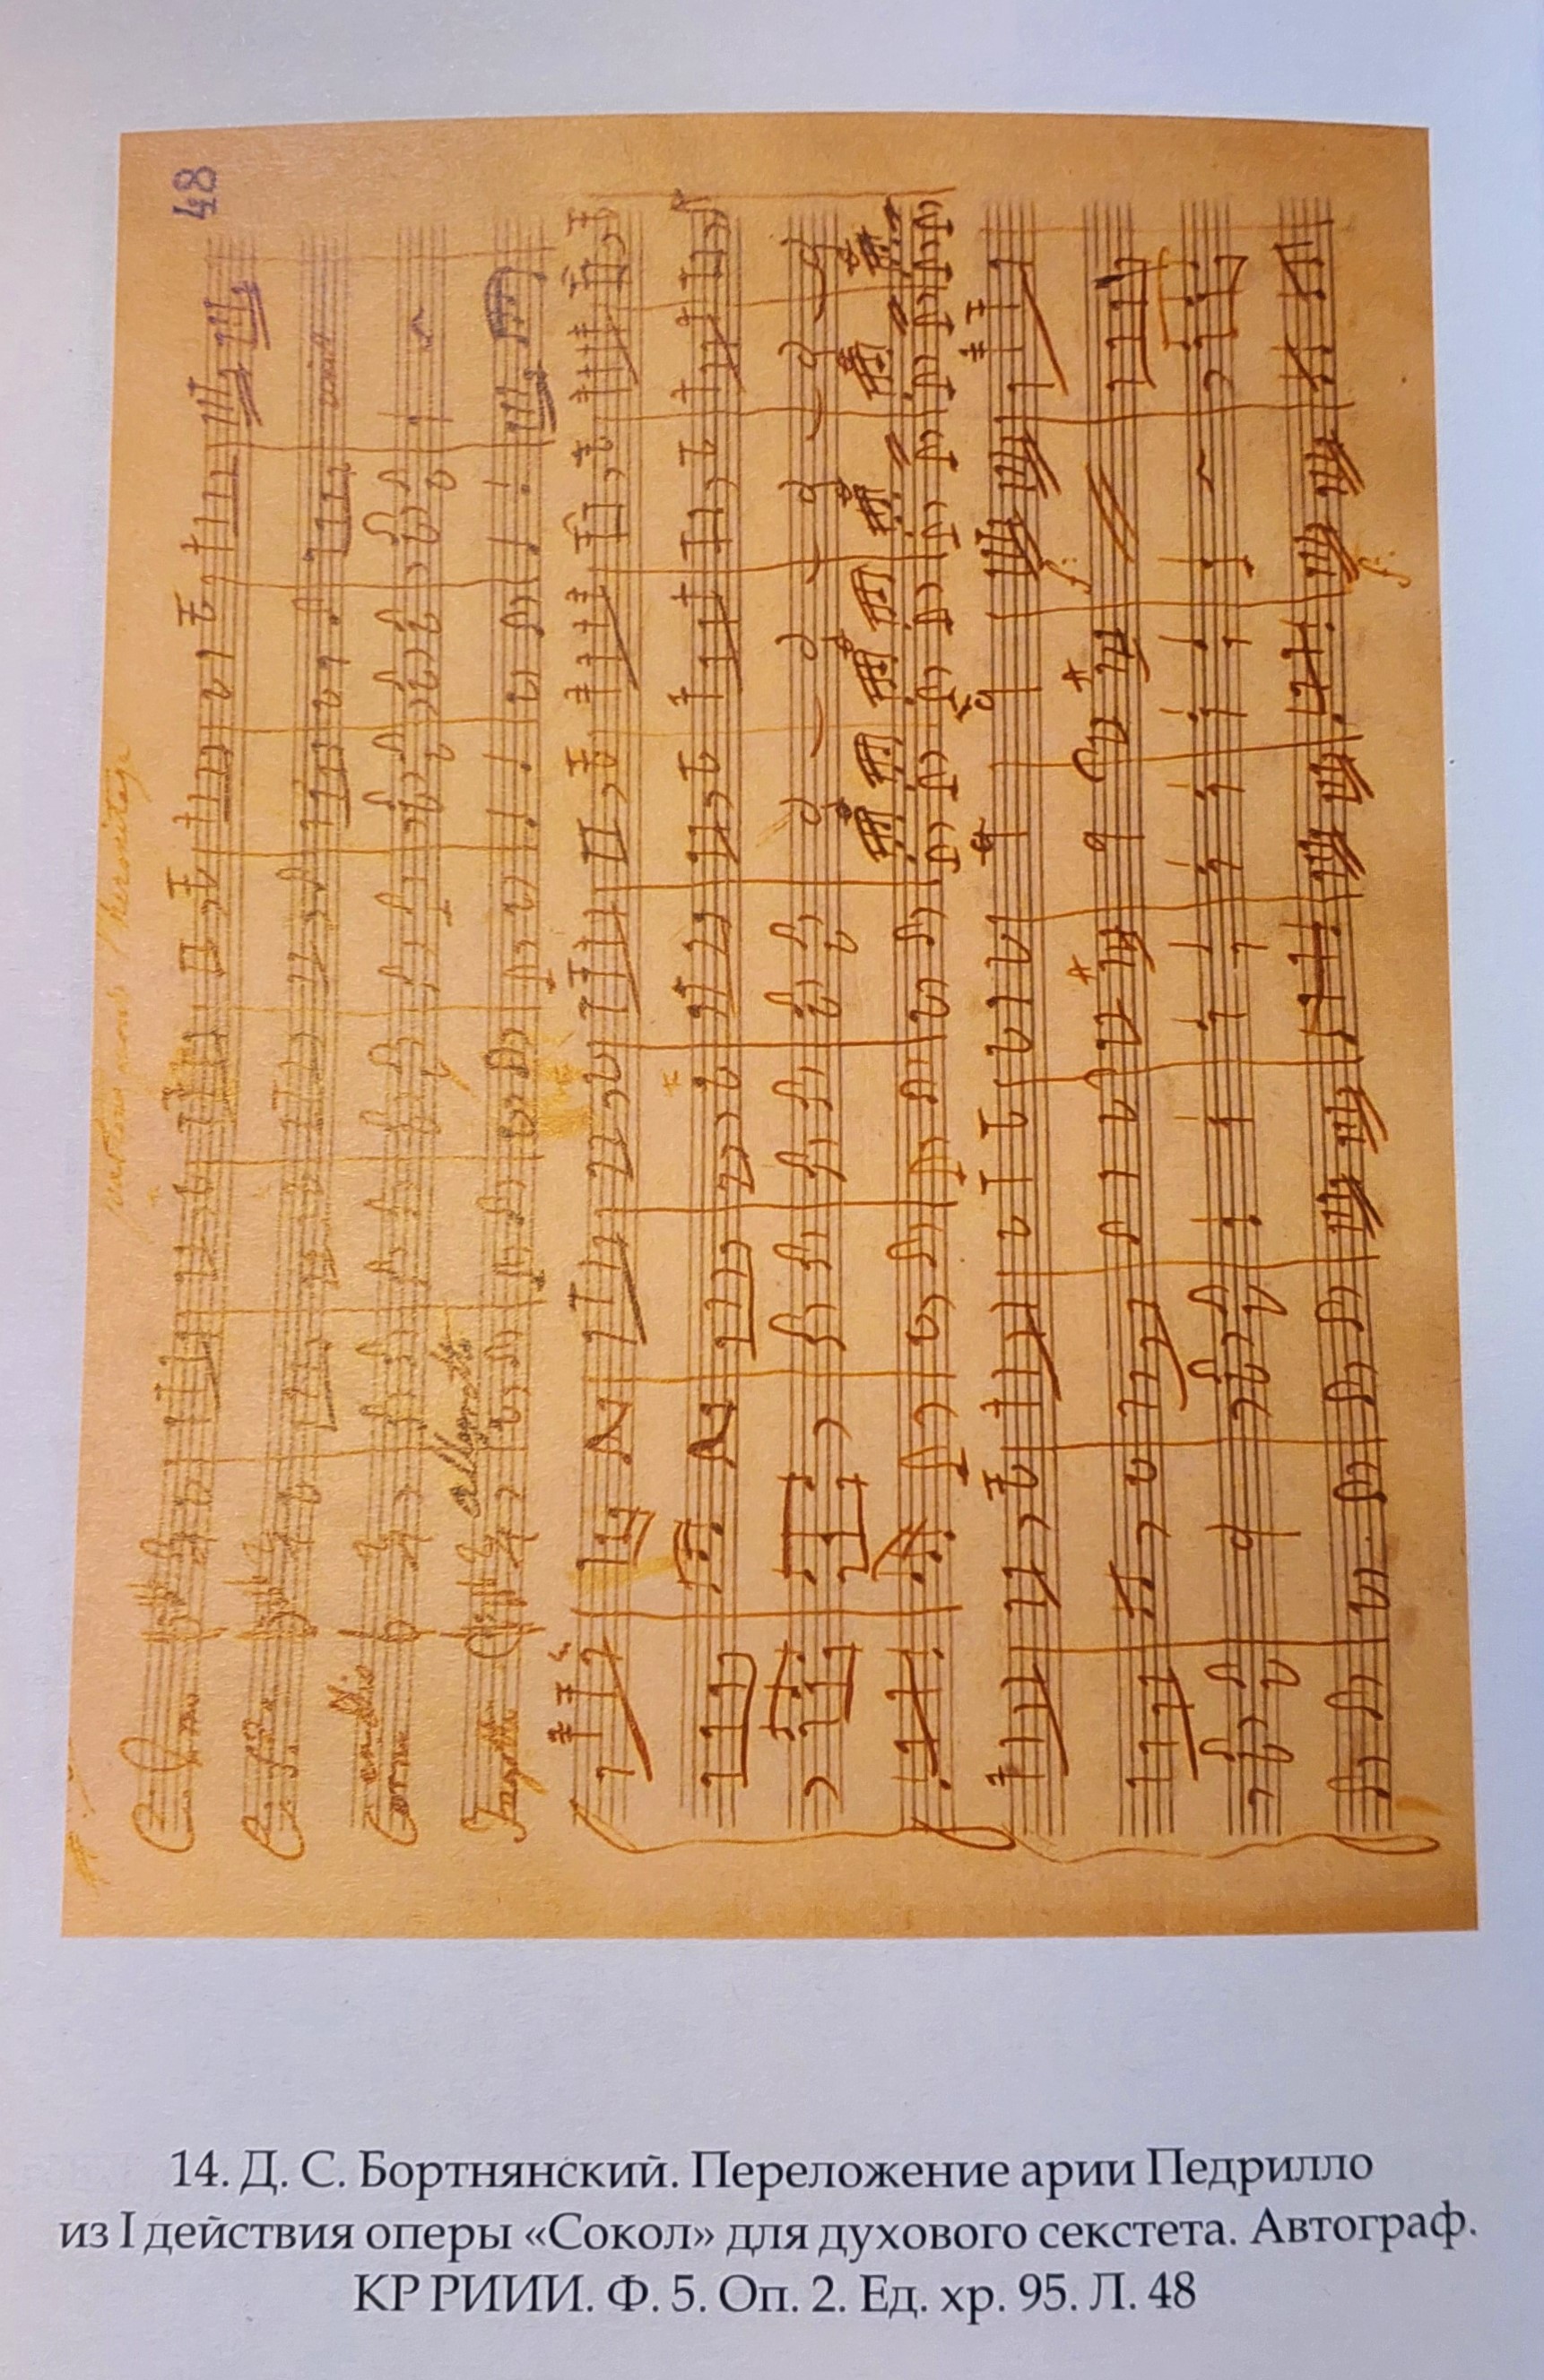 48
Corni
Allegretto
Fagotti
14. Д. С. Бортнянский. Переложение арии Педрилло
из I действия оперы «Сокол» для духового секстета. Автограф.
КР РИИИ. Ф. 5. Оп. 2. Ед. хр. 95. Л. 48